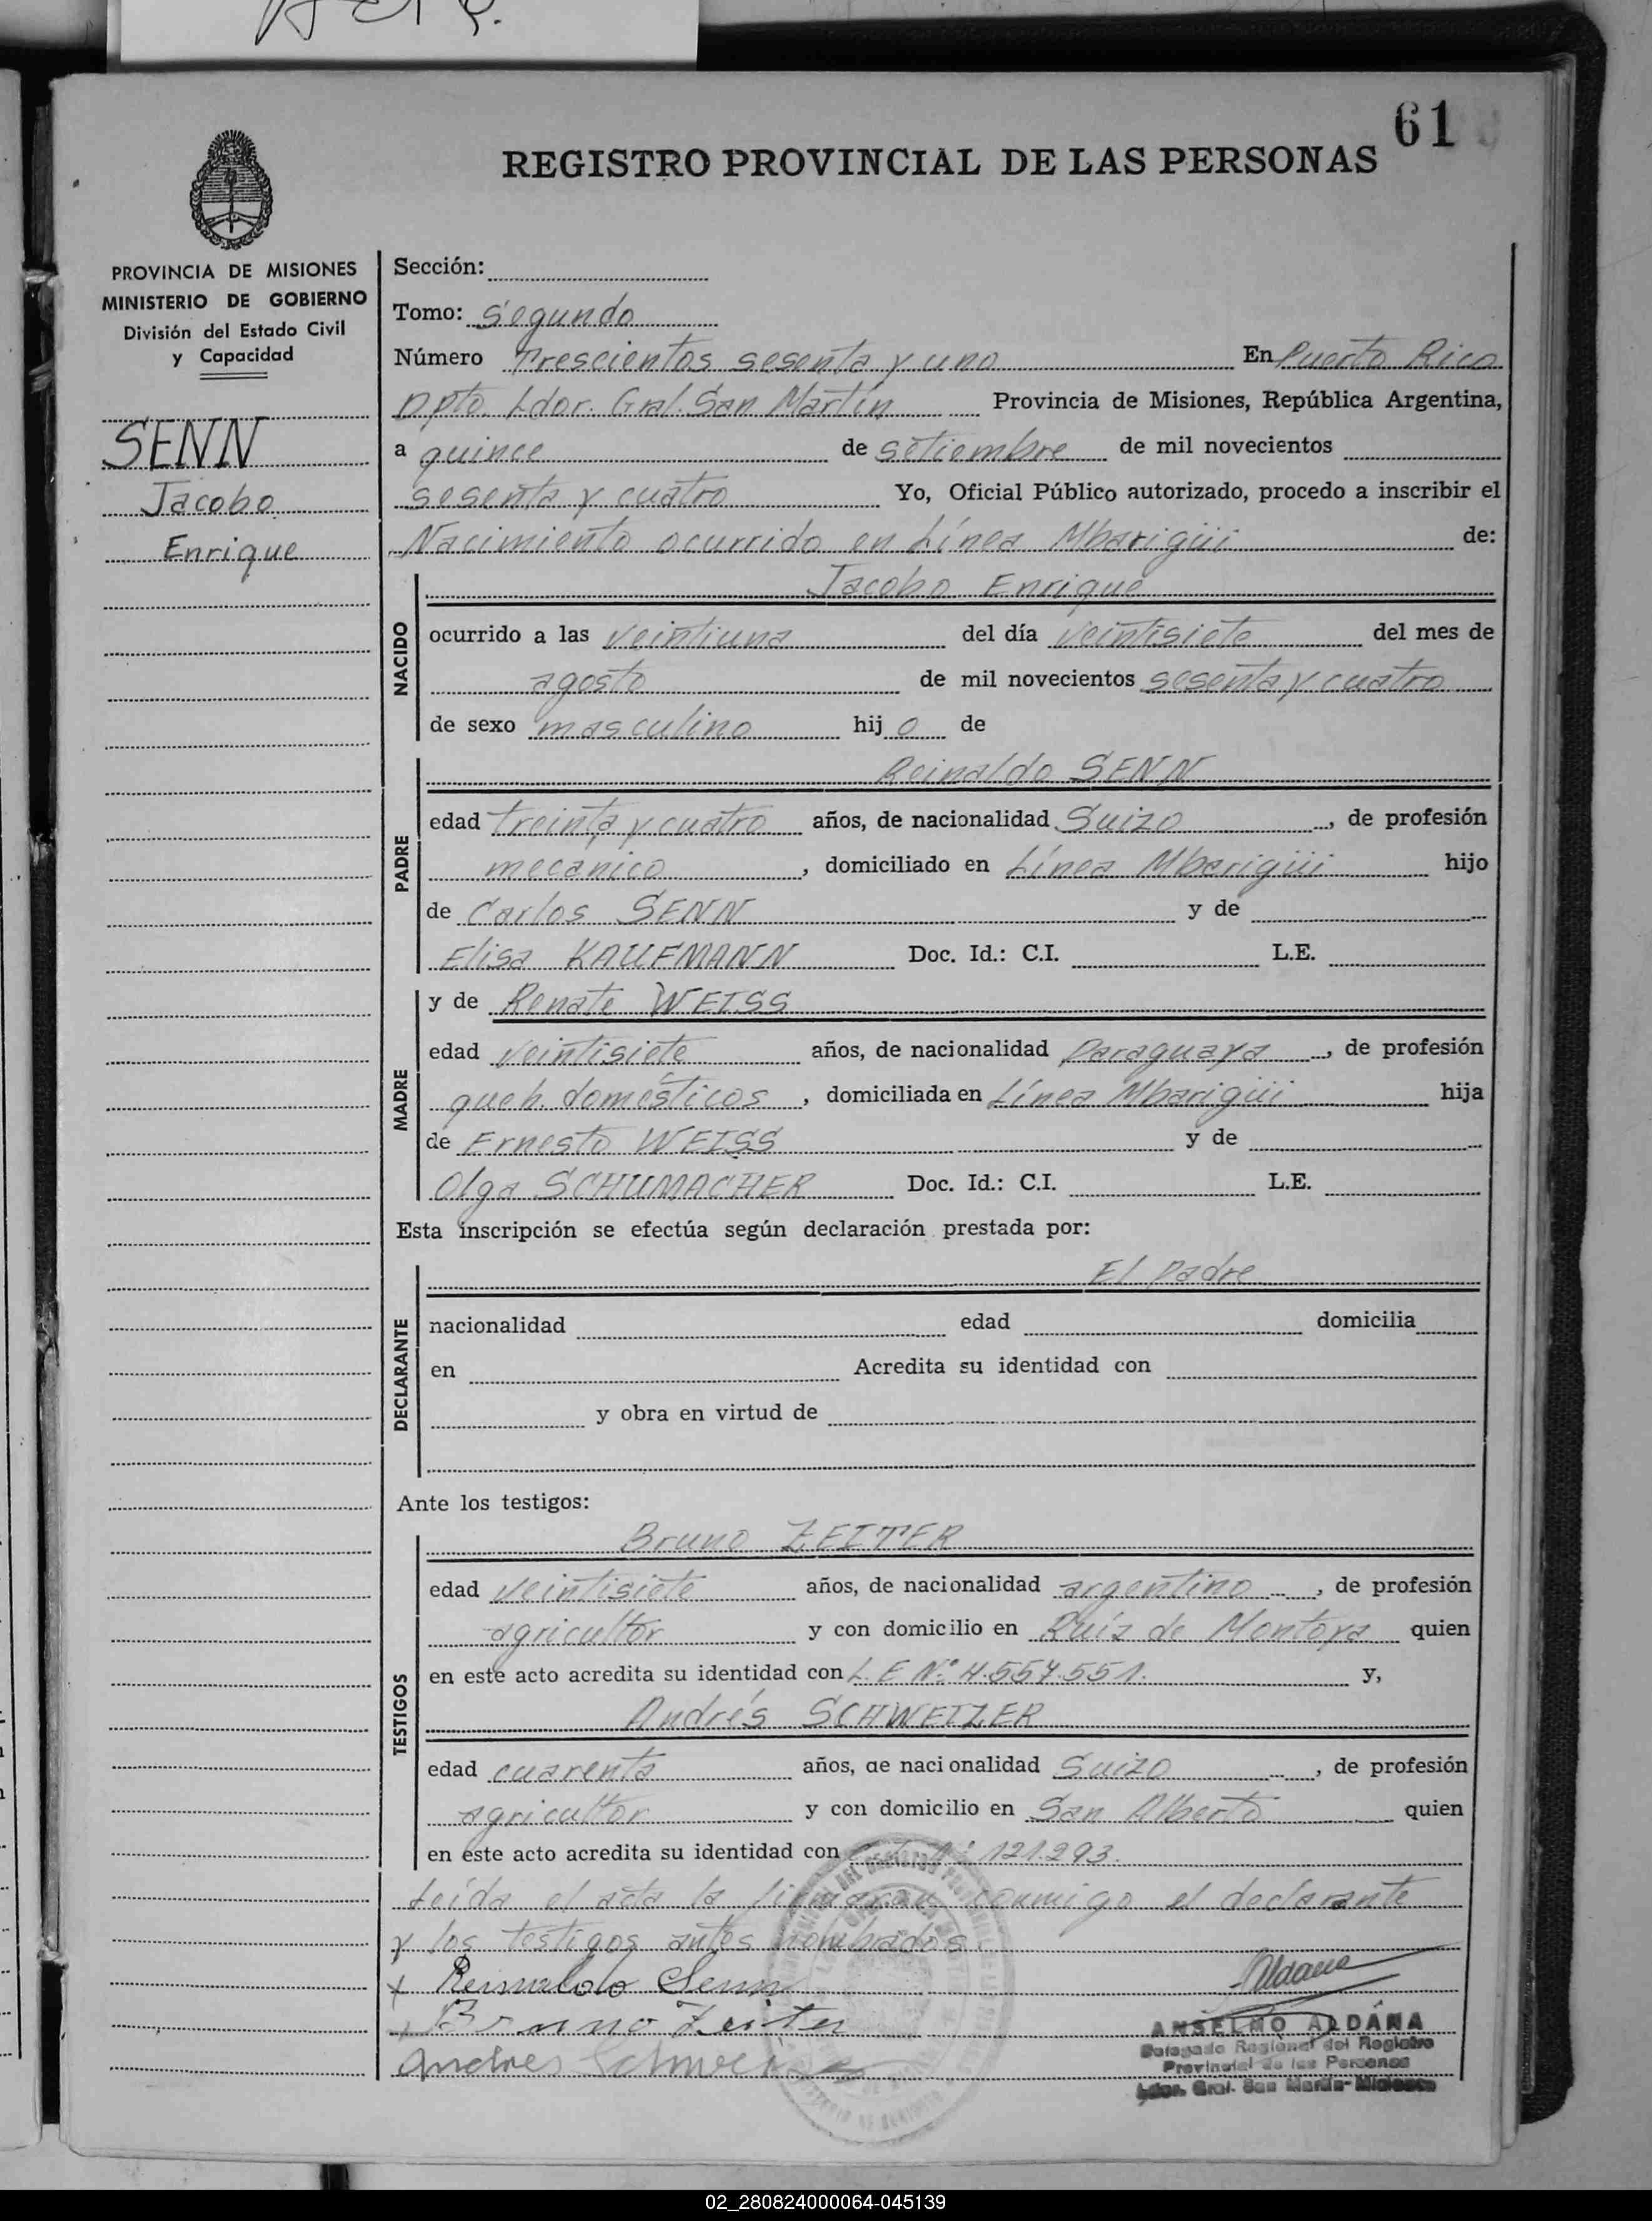 61
REGISTRO PROVINCIAL DE LAS PERSONAS
PROVINCIA DE MISIONES
MINISTERIO DE GOBIERNO
División del Estado Civil
y Capacidad
SENN
Jacobo
Enrique
Sección:
Tomo: Segundo
Número Trescientos sesenta y uno En Puerto Rico
Dpto. Ldor. Gral. San Martín Provincia de Misiones, República Argentina,
a quince de setiembre de mil novecientos
sesenta y cuatro Yo, Oficial Público autorizado, procedo a inscribir el
Nacimiento ocurrido en Línea Mbarigüi de:
NACIDO
Jacobo Enrique
ocurrido a las veintiuna del día veintisiete del mes de
agosto de mil novecientos sesenta y cuatro
de sexo masculino hijo de
PADRE
Reinaldo SENN
edad treinta y cuatro años, de nacionalidad Suizo, de profesión
mecanico, domiciliado en Línea Mbarigüi hijo
de Carlos SENN y de
Elisa KAUFMANN Doc. Id.: C.I. L.E.
MADRE
y de Renate WEISS
edad veintisiete años, de nacionalidad Paraguaya, de profesión
queh. domésticos, domiciliada en Línea Mbarigüi hija
de Ernesto WEISS y de
Olga SCHUMACHER Doc. Id.: C.I. L.E.
Esta inscripción se efectúa según declaración prestada por:
DECLARANTE
El padre
nacionalidad edad domicilia
en Acredita su identidad con
y obra en virtud de
Ante los testigos:
TESTIGOS
Bruno ZEITER
edad veintisiete años, de nacionalidad argentino, de profesión
agricultor y con domicilio en Ruíz de Montoya quien
en este acto acredita su identidad con L.E Nº 4.557.551. y,
Andrés SCHWEIZER
edad cuarenta años, de nacionalidad Suizo, de profesión
agricultor y con domicilio en San Alberto quien
en este acto acredita su identidad con 121.293.
Leída el acta la firmaran conmigo el declarante
y los testigos antes nombrados.
Reinaldo Senn
Bruno Zeiter
Andres
Aldana
ANSELMO ALDANA
Delegado Regional del Registro
Provincial de las Personas
Ldor. Gral. San Martín-Misiones
02_280824000064-045139